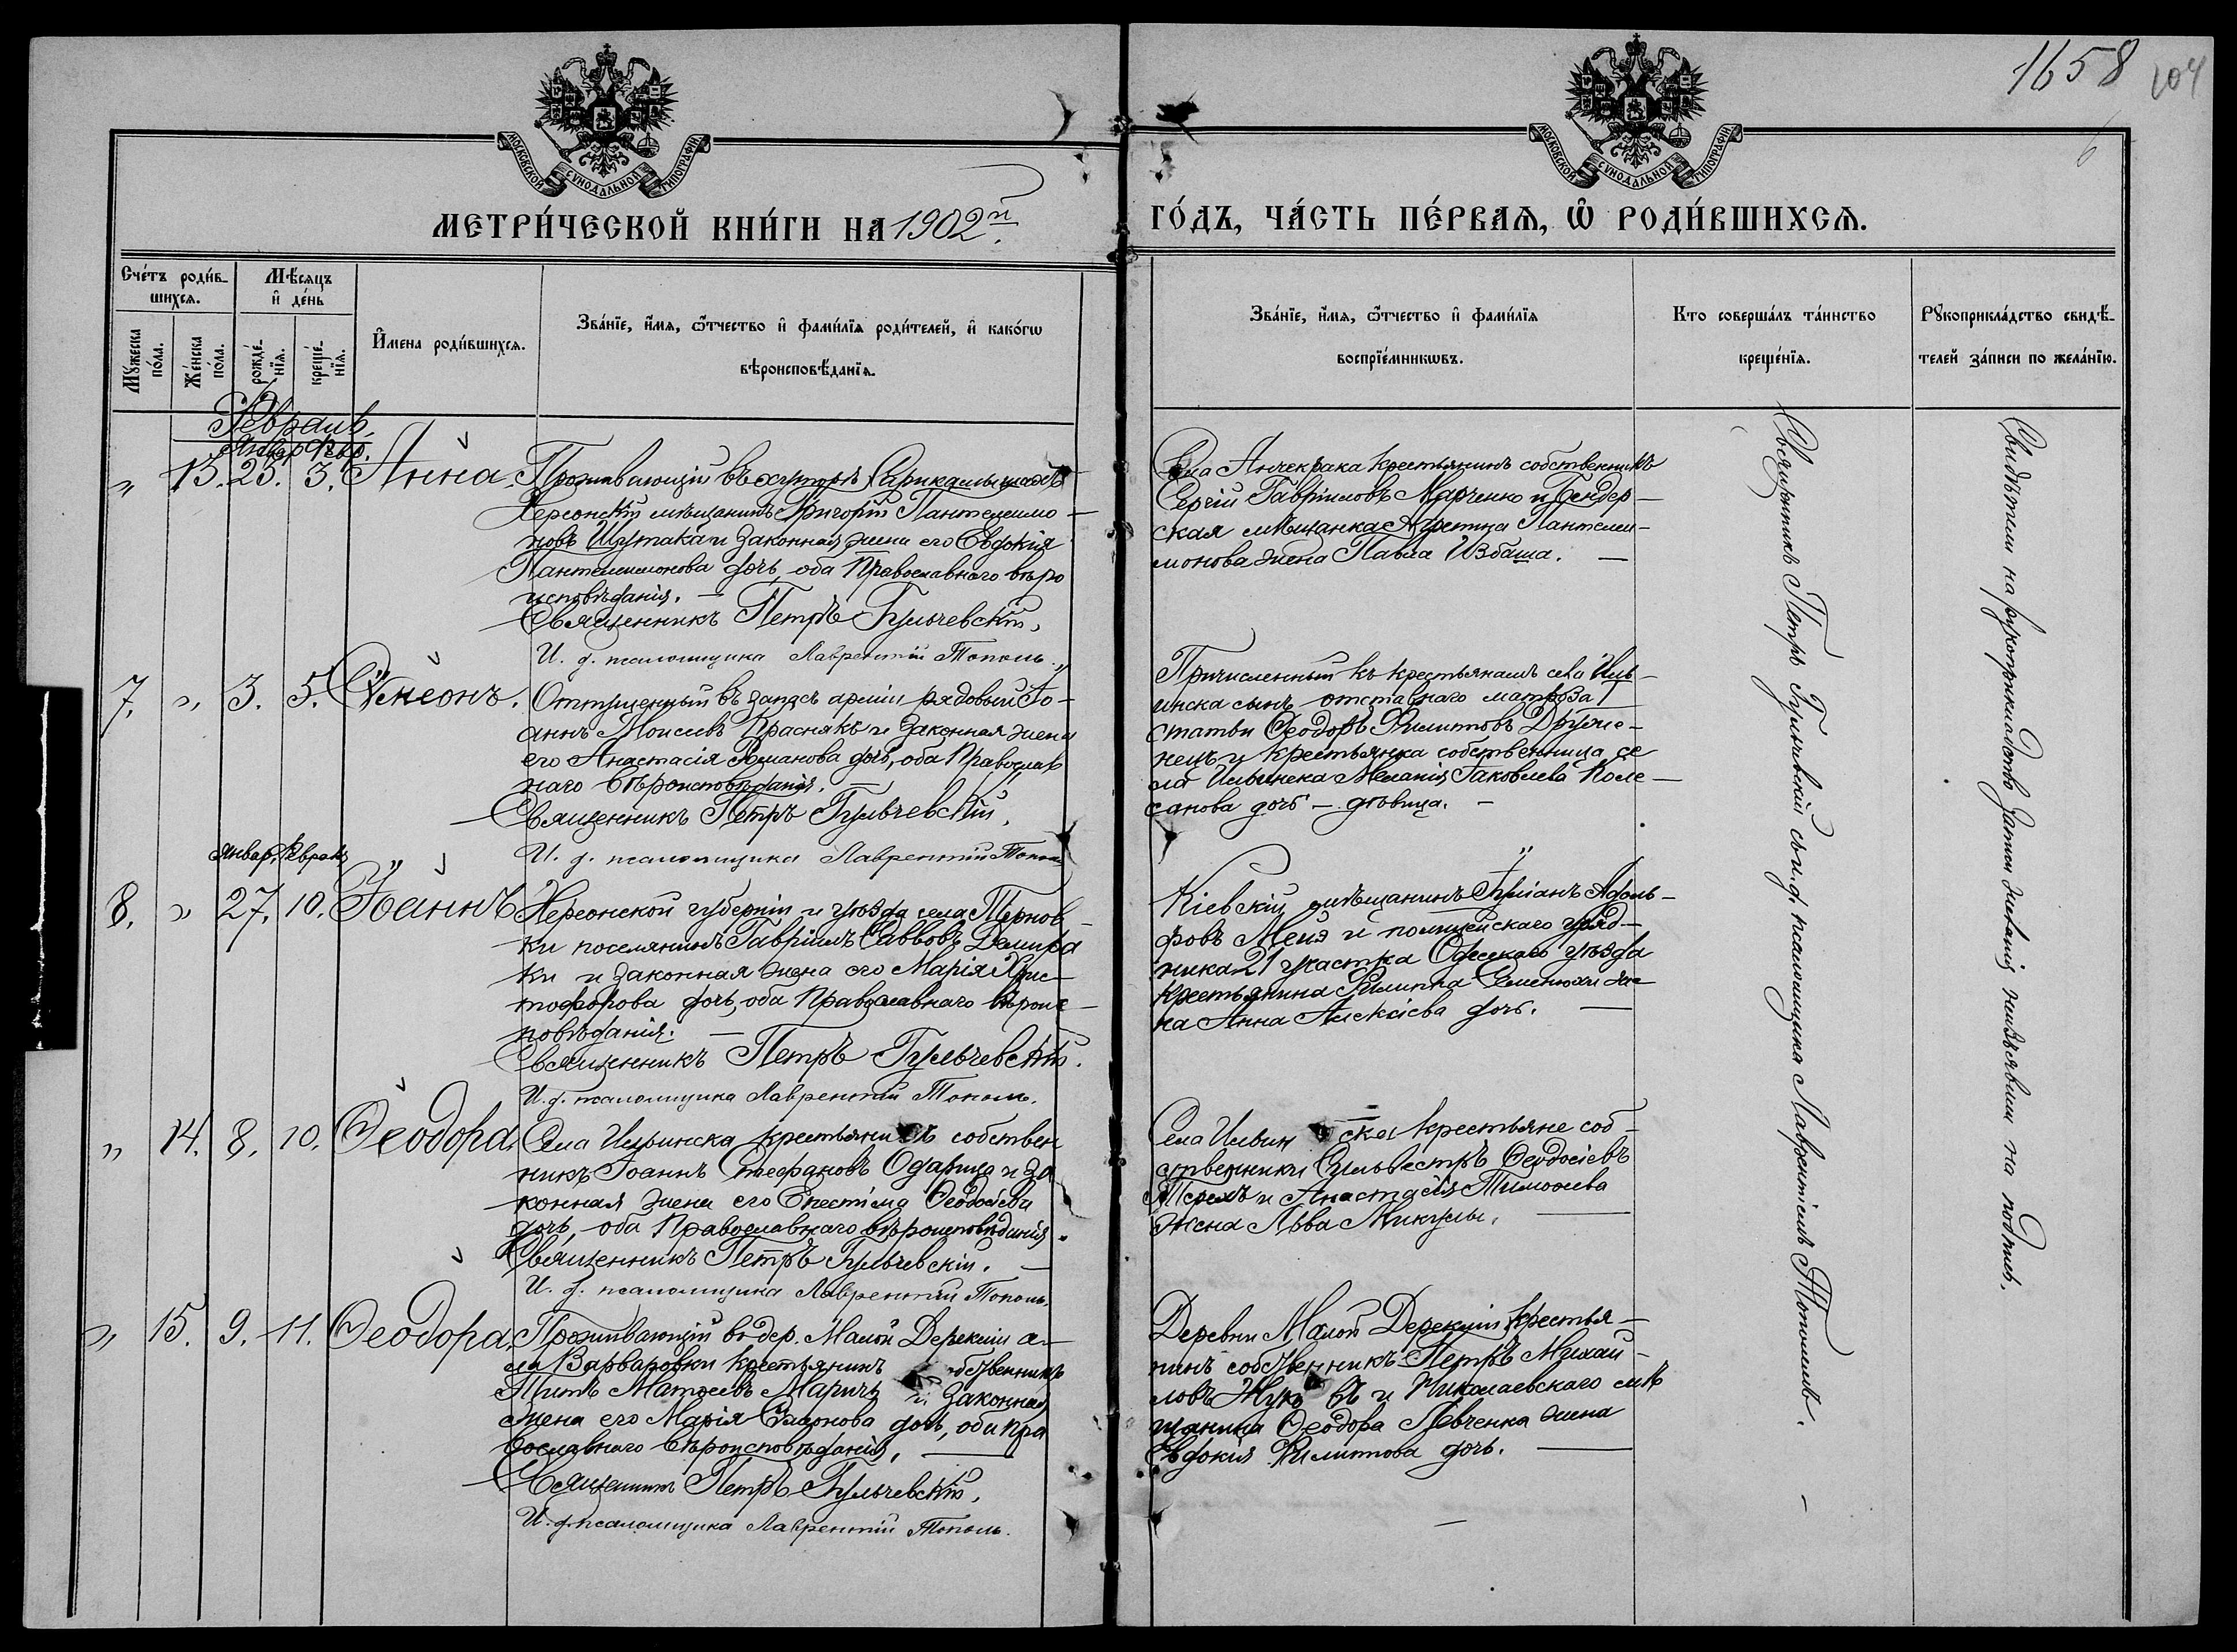 1658 104
6
МОСКОВСКОЙ СѴНОДАЛЬНОЙ ТИПОГРАФІИ
МОСКОВСКОЙ СѴНОДАЛЬНОЙ ТИПОГРАФІИ
МЕТРИ́ЧЕСКОЙ КНИ́ГИ НА 1902й.
ГО́ДЪ, ЧА́СТЬ ПЕ́РВАѦ, Ѡ҆ РОДИ́ВШИХСѦ.
Сче́тъ роди́в-
шихсѧ.
Мꙋ́жеска по́ла.
Же́нска по́ла.
Мѣ́сѧцъ
и҆ де́нь
рожде́-нїѧ.
креще́-нїѧ.
И҆мена роди́вшихсѧ.
Зва́нїе, и҆́мѧ, ѻ҆́тчество и҆ фами́лїѧ роди́телей, и҆ како́гѡ
вѣроисповѣ́данїѧ.
Зва́нїе, и҆́мѧ, ѻ҆́тчество и҆ фами́лїѧ
воспрїе́мникѡвъ.
Кто соверша́лъ та́инство
креще́нїѧ.
Рꙋкоприкла́дство свидѣ́-
телей за́писи по жела́нїю.
Февраль.
Январ. Февр.
„ 13. 25. 3. Анна. Проживающій въ хуторѣ
Херсонскій мѣщанинъ Григорій Пантелеимо-
новъ Шутака и законная жена его Евдокія
Пантелеимонова дочь, оба Православнаго веро
исповѣданія. —
Священникъ Петръ Гульчевскій.
И. д. псаломщика Лаврентій Тополь.
Села Анчекрака крестьянинъ собственникъ
Сергій Гавріиловъ Марченко и Бендер-
ская мѣщанка Пантелеи-
монова жена Павла Избаша. —
7. „ 3. 5. Сѵмеонъ. Отпущенный въ запасъ арміи рядовый Іо-
аннъ Моисеевъ Краснякъ и законная жена
его Анастасія Романова дочь, оба Православ
наго Вѣроисповѣданія. —
Священникъ Петръ Гульчевскій.
И. д. псаломщика Лаврентій Тополь
Причисленный къ крестьянамъ села Иль-
инска сынъ отставнаго матроза 1
статьи Ѳеодоръ Филипповъ Друже-
нецъ и крестьянка собственница се
ла Ильинска Меланія Іаковлева Коле-
санова дочь — дѣвица. —
Январ. Февраль
8. „ 27. 10. Іоаннъ Херсонской губерніи и уѣзда села Тернов-
ки поселянинъ Гавріилъ Савовъ
ки и законная жена его Марія Хрис-
тофорова дочь, оба Православнаго Вѣроис-
повѣданія. —
Священникъ Петръ Гульчевскій.
И. д. псаломщика Лаврентій Тополь.
Кіевскій мѣщанинъ Юліанъ Адоль-
фовъ и полицейскаго уряд-
ника 21 участка Одесскаго уѣзда
крестьянина Филиппа же-
на Анна Алексіева дочь. —
„ 14. 8. 10. Ѳеодора. Села Ильинска крестьянинъ собствен
никъ Іоаннъ Стефановъ Одарица и за
конная жена его Епестима Ѳеодосіева
дочь, оба Православнаго вѣроисповѣданія.
Священникъ Петръ Гульчевскій. —
И. д. псаломщика Лаврентій Тополь.
Села Ильинска крестьяне соб-
ственники Сильвестръ Ѳеодосіевъ
Терехъ и Анастасія Тимоѳеева
жена Льва Микулы. —
„ 15. 9. 11. Ѳеодора. Проживающій въ дер. Малой Дерекліи
ла Варваровки крестьянинъ собственникъ
Титъ Матѳеевъ Маричъ и законная
жена его Марія дочь, оба пра
вославнаго вѣроисповѣданія. —
Священникъ Петръ Гульчевскій.
И. д. псаломщика Лаврентій Тополь.
Деревни Малой Дерекліи крестья-
нинъ собственникъ Петръ Михаи-
ловъ и Николаевскаго мѣ
щанина Ѳеодора Левченка жена
Евдокія Филиппова дочь. —
Священникъ Петръ Гульчевскій съ и. д. псаломщика Лаврентіемъ Тополемъ.
Свидѣтели на рукоприкладство записи желанія неизъявили на подпись.